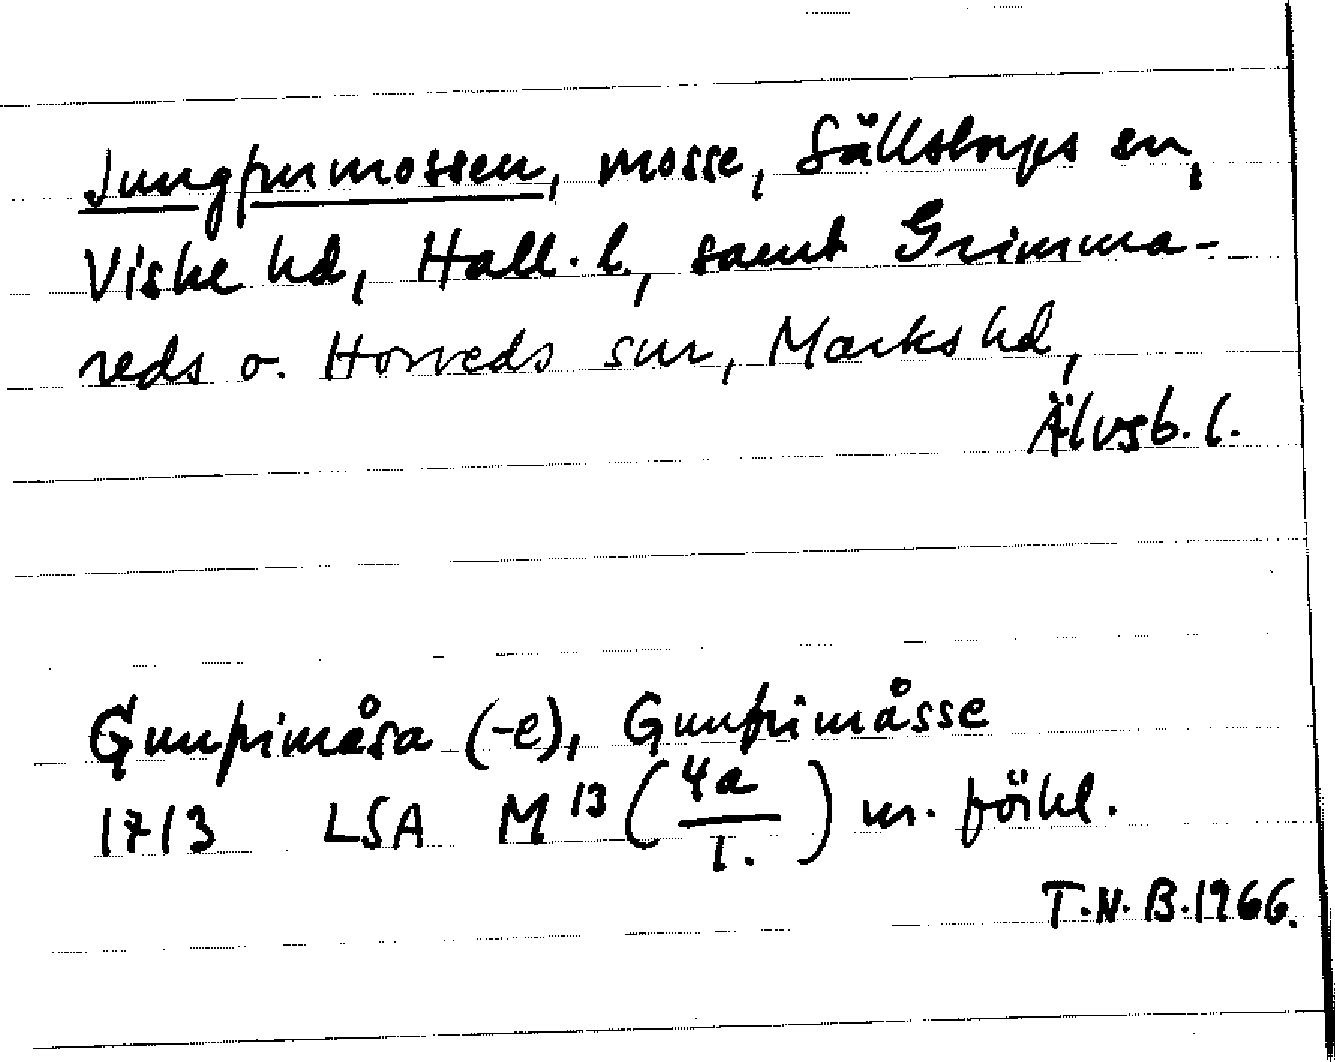 Jungfrumossen, mosse, Sällstorps sn,
Viske hd, Hall. l., samt Grimma-
reds o. Horreds snr, Marks hd,
Älvsb. l.
Gunfrimåsa (-e), Gunfrimåsse
1713 LSA M 13 (4a/1.) m. förkl.
T.N.B. 1966.